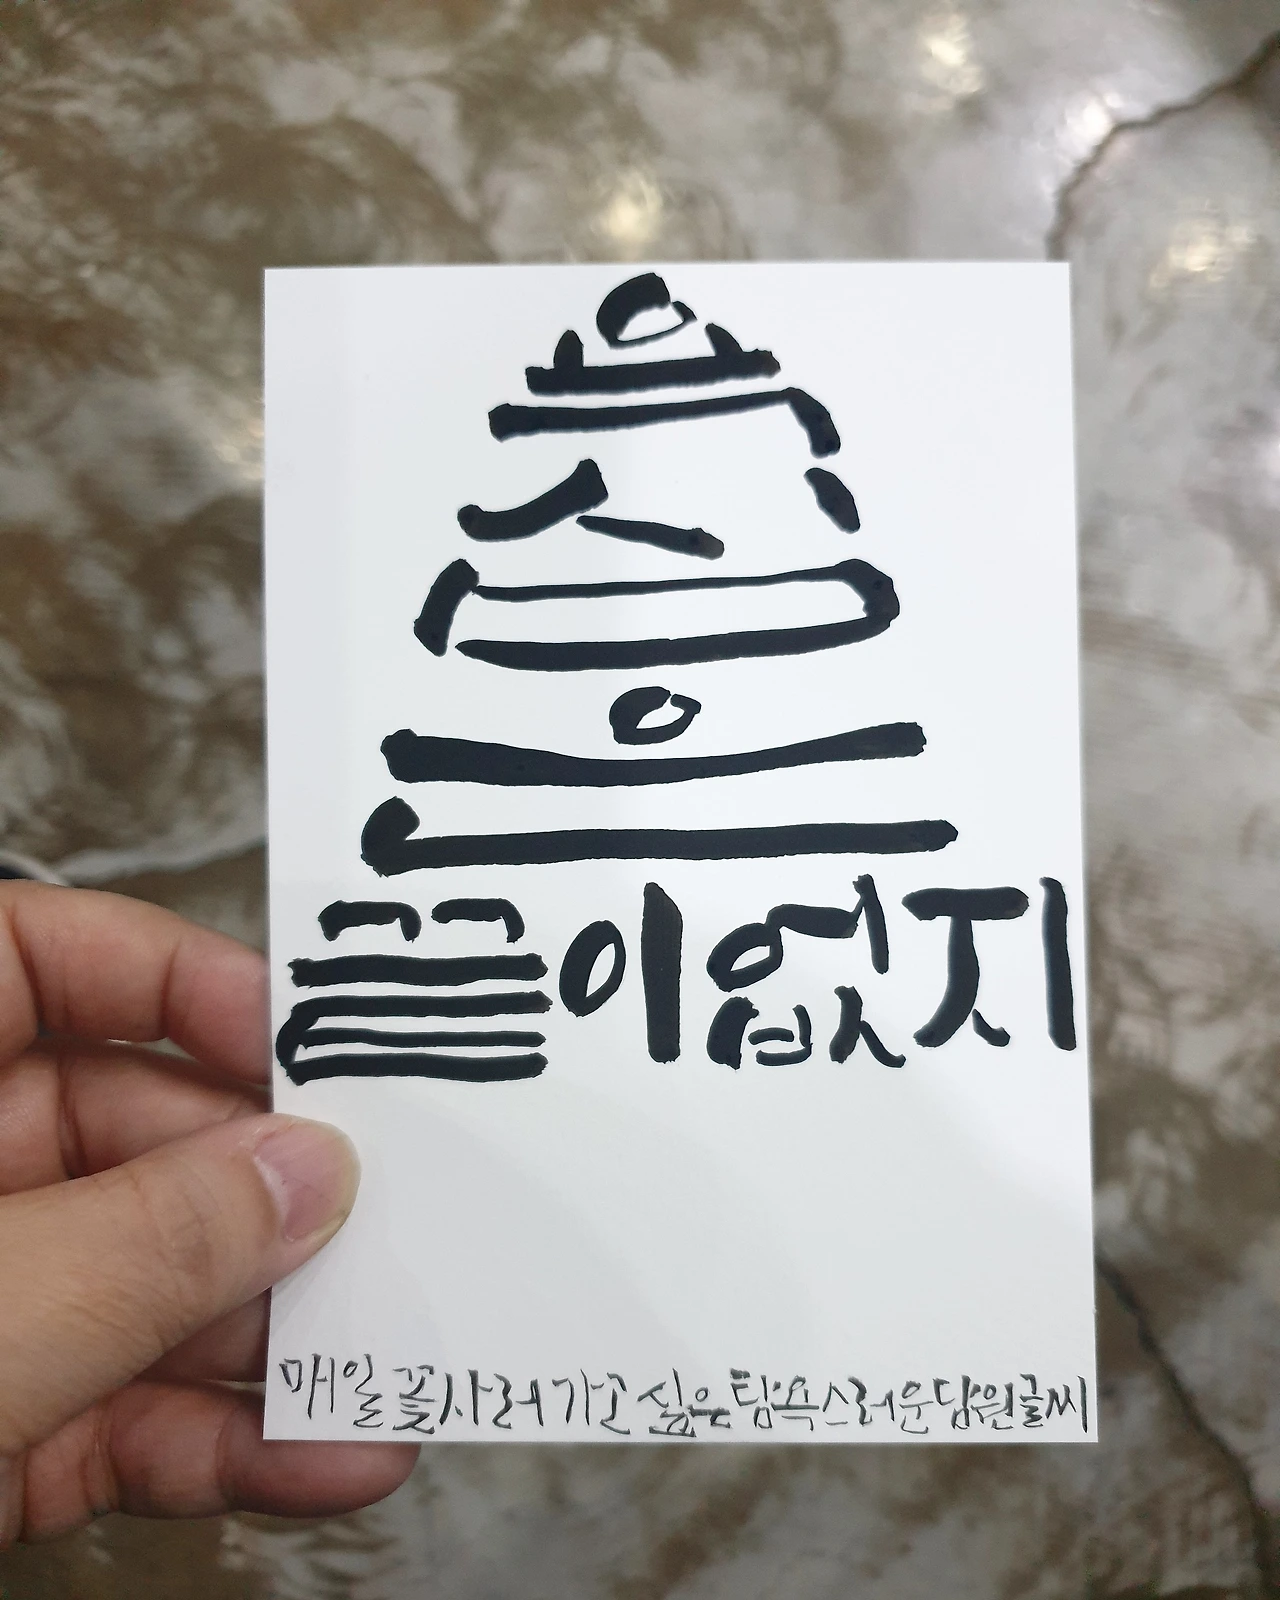 욕
심
은
끝이없지
매일 꽃사러가고 싶은 탐욕스러운담원글씨